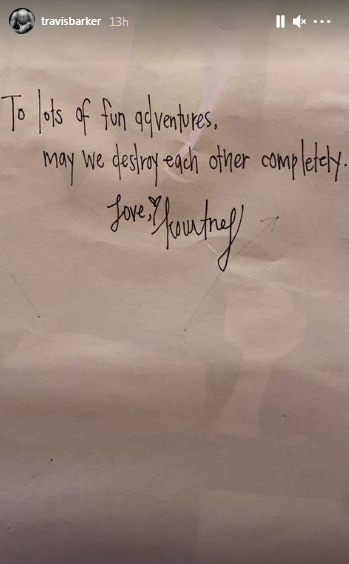 travisbarker 13h
To lots of fun adventures,
may we destroy each other completely.
Love, Kourtney